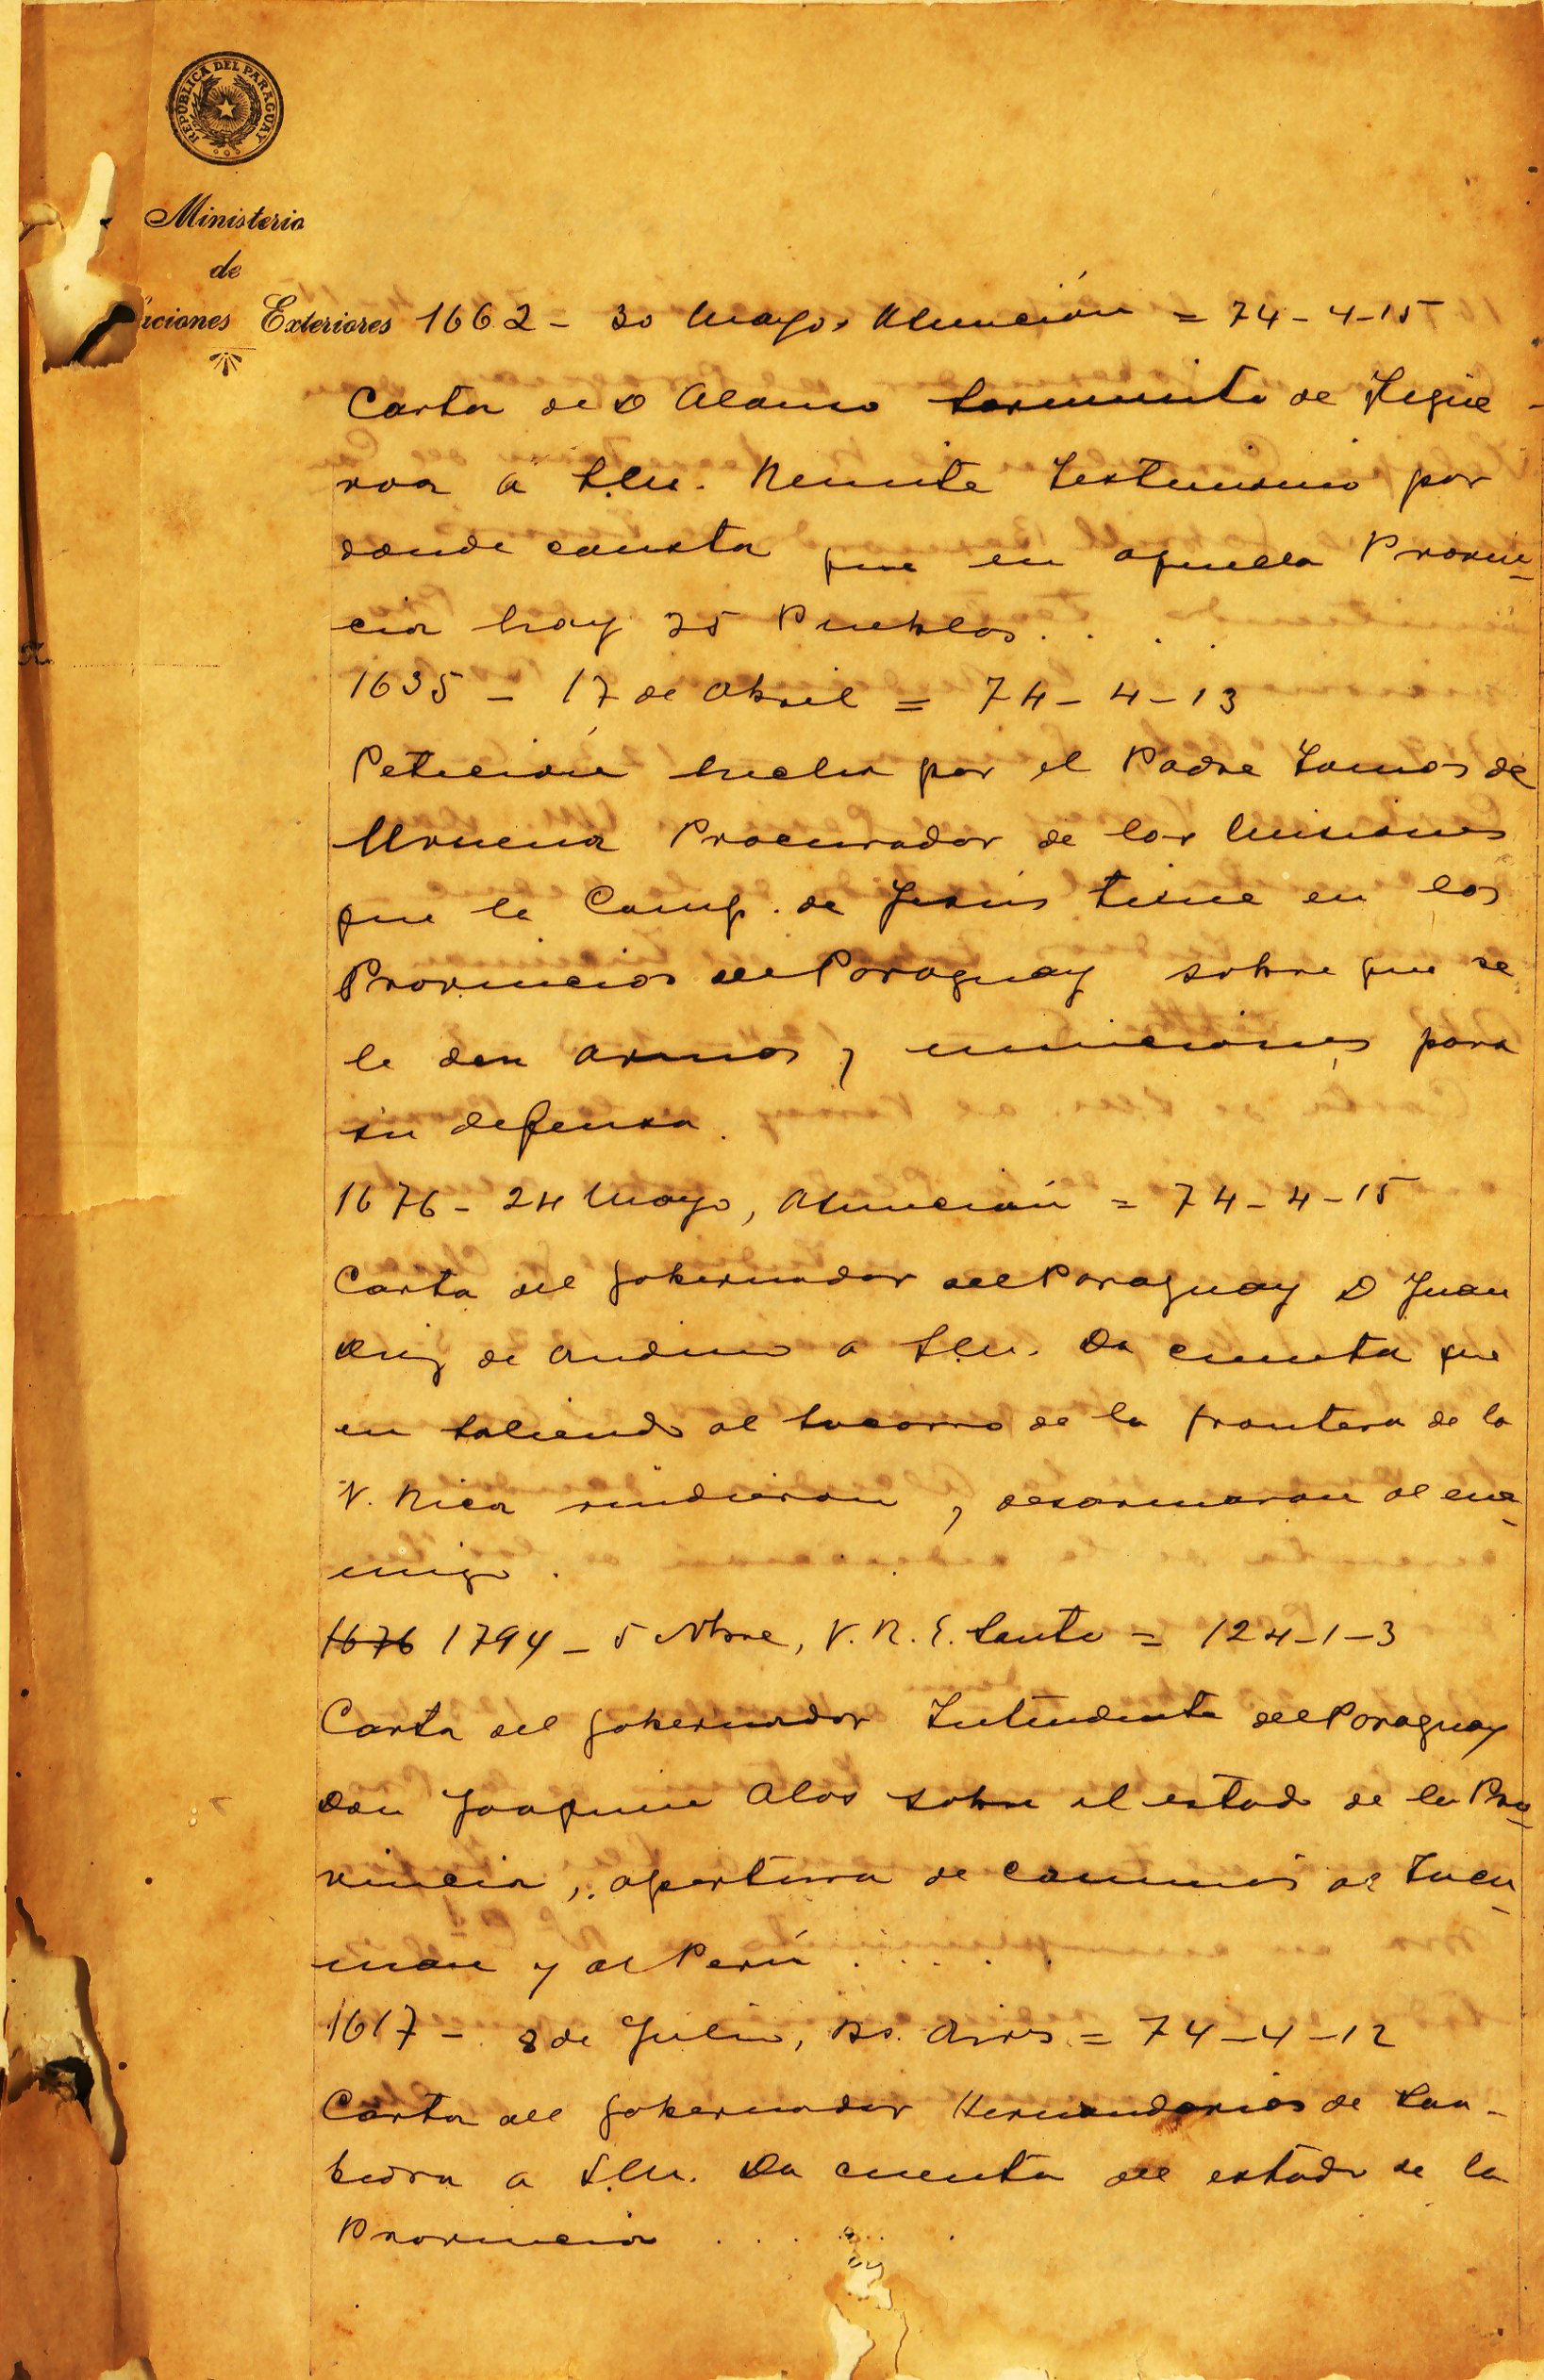 REPÚBLICA DEL PARAGUAY
Ministerio
de
aciones Exteriores
1662 - 30 Mayo, Asunción = 74-4-15
Carta de D Alonso Sarmiento de Figue-
roa a S.M. Remite Testimonio por
donde consta que en aquella Provin-
cia hay 25 Pueblos . . .
1635 - 17 de Abril = 74-4-13
Petición hecha por el Padre Tomas de
Uruena Procurador de las Misiones
que la Comp. de Jesús tiene en las
Provincias del Paraguay sobre que se
le den armas y municiones para
su defensa.
1676 - 24 Mayo, Asunción = 74-4-15
Carta del Gobernador del Paraguay D Juan
Diez de Andino a S.M. Da cuenta que
en saliendo al socorro de la frontera de la
V. Rica rindieron y desarmaron al ene-
migo.
1676 1794 - 5 Nbre, V. R. E. Santo = 124-1-3
Carta del Gobernador Intendente del Paraguay
Don Joaquin Alos sobre el estado de la Pro-
vincia, apertura de caminos al Tucu-
man y al Perú . . . .
1617 - 8 de Julio, Bs. Aires = 74-4-12
Carta del Gobernador Hernandarias de Saa-
bedra a S.M. Da cuenta del estado de la
Provincia . . . . .